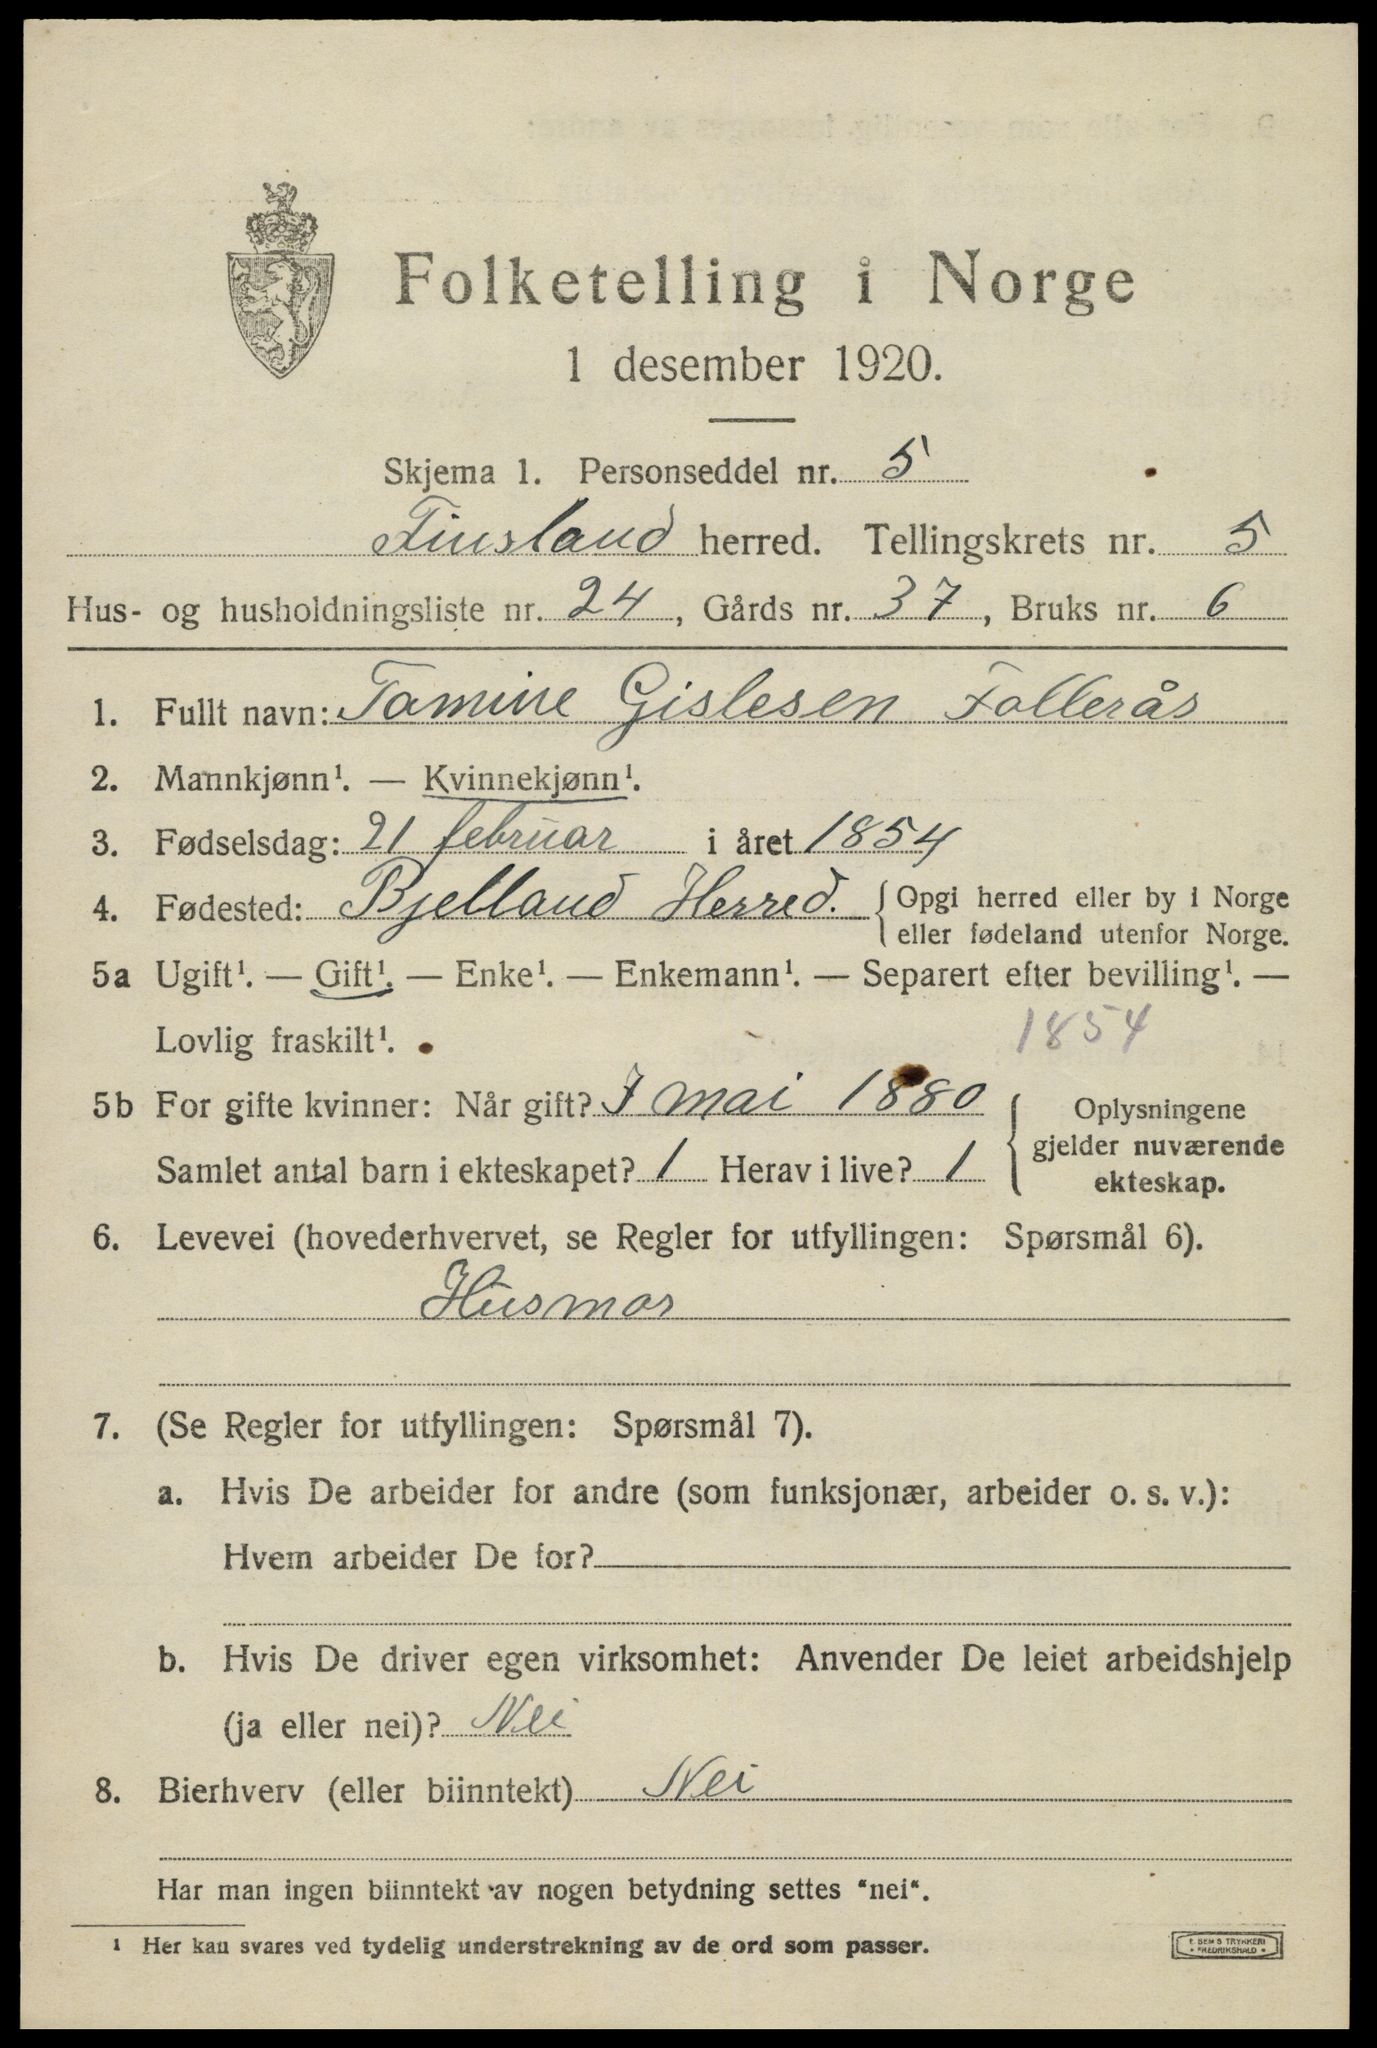 Folketelling i Norge
1 desember 1920.
Skjema 1. Personseddel nr. 5
Finsland herred. Tellingskrets nr. 5
Hus- og husholdningsliste nr. 24, Gårds nr. 37, Bruks nr. 6
1. Fullt navn: Tomine Gislesen Follerås
2. Mannkjønn¹. — Kvinnekjønn¹.
3. Fødselsdag: 21 februar i året 1854
4. Fødested: Bjelland Herred. { Opgi herred eller by i Norge
eller fødeland utenfor Norge.
5a Ugift¹. — Gift¹. — Enke¹. — Enkemann¹. — Separert efter bevilling¹. —
Lovlig fraskilt¹. 1854
5b For gifte kvinner: Når gift? 7 mai 1880 { Oplysningene
gjelder nuværende
Samlet antal barn i ekteskapet? 1 Herav i live? 1
ekteskap.
6. Levevei (hovederhvervet, se Regler for utfyllingen: Spørsmål 6).
Husmor
7. (Se Regler for utfyllingen: Spørsmål 7).
a. Hvis De arbeider for andre (som funksjonær, arbeider o. s. v.):
Hvem arbeider De for?
b. Hvis De driver egen virksomhet: Anvender De leiet arbeidshjelp
(ja eller nei)? Nei
8. Bierhverv (eller biinntekt) Nei
Har man ingen biinntekt av nogen betydning settes "nei".
¹ Her kan svares ved tydelig understrekning av de ord som passer.
E. SEMS TRYKKERI
• FREDRIKSHALD •